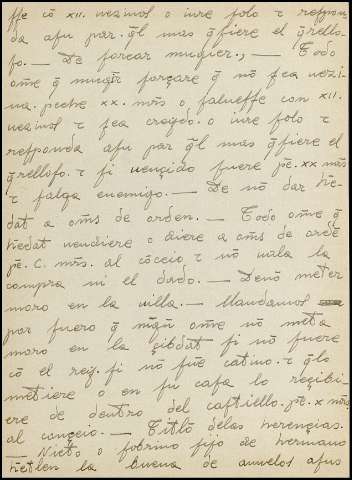 ffe cō xii. vezinos o iure solo τ respon
da a su par. q̄l mas q̄siere el q̄rello
so. — De forcar mugier., — Todo
ome q̄ mugr̄ forçare q̄ nō sea vezi
na. peche xx. mr̄s o salvesse con xii.
vezinos τ sea creydo. o iure solo τ
responda a su par q̄l mas q̄siere el
q̄relloso. τ si vençido fuere pe. xx mr̄s
τ salga enemigo. — De nō dar h̄e-
dat a om̄s de orden. — Todo ome q̄
h̄edat vendiere o diere a om̄s de ordē
pe. C. mr̄s. al cōceio τ nō vala la
compra ni el dado. — De nō meter
moro en la villa. — Mandamos
por fuero q̄ nīgū ome nō meta
moro en la çibdat si nō fuere
cō el rey. si nō fue cativo. τ q̄lo
metiere o en su casa lo recibi-
ere de dentro del castiello. pe. x mr̄s
al conçeio. — Titlo delas herençias.
— Nieto o sobrino fijo de hermano
h̄eden la buena de avuelos a sus